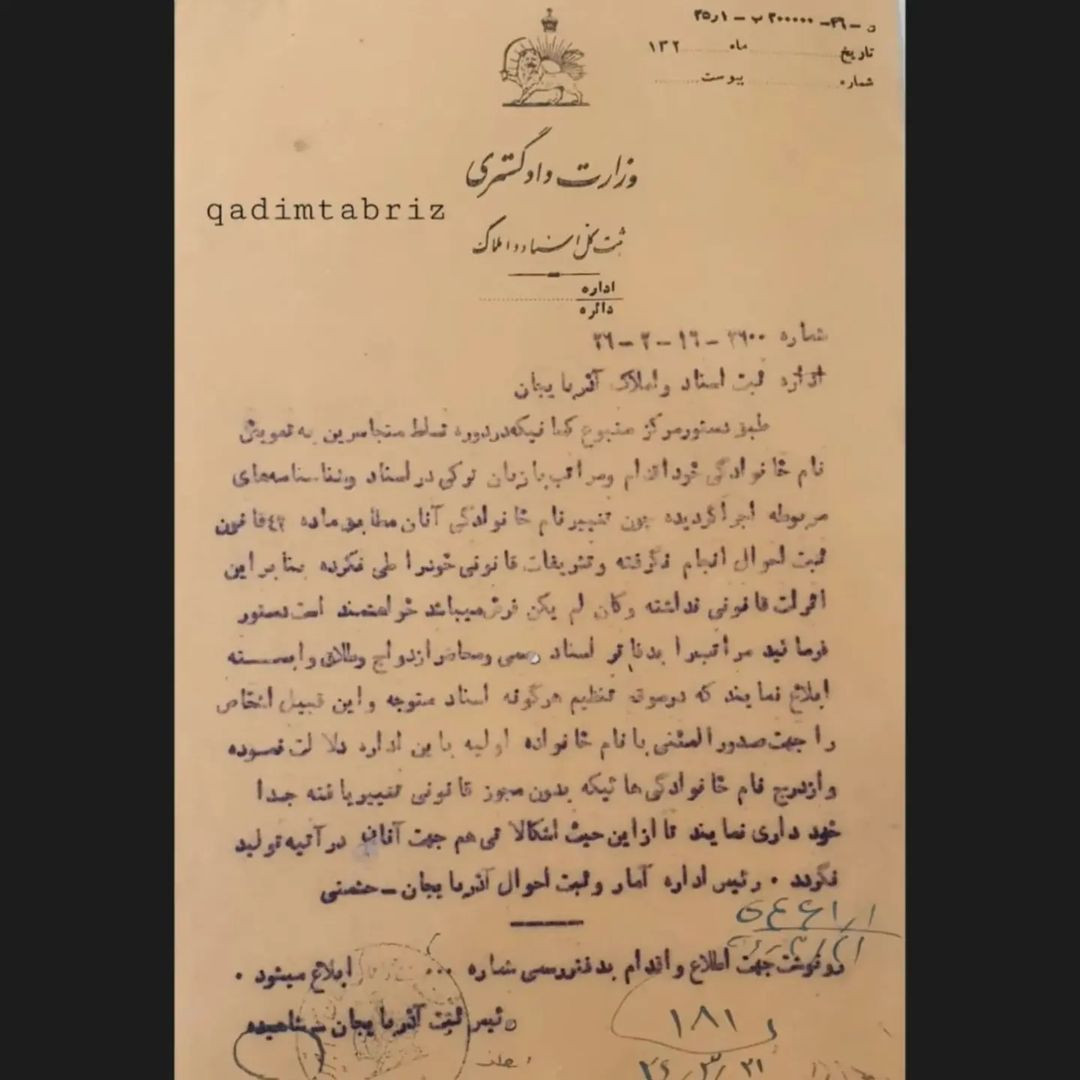 ن - ۳۶- ۲۰۰۰۰۰ ب - ۱ر۲۵
تاریخ ماه ۱۳۲
شماره پیوست
وزارت دادگستری
qadimtabriz
ثبت کل اسناد و املاک
اداره
دائره
شماره ۳۶۰۰ - ۱۶ - ۲ - ۲۶
اداره ثبت اسناد و املاک آذربایجان
طبق دستور مرکز متبوع کسانیکه در دوره تسلط متجاسرین به تعویض
نام خانوادگی خود اقدام ومراتب با زبان ترکی در اسناد وشناسنامه‌های
مربوطه اجرا گردیده چون تغییر نام خانوادگی آنان مطابق ماده ۴۲ قانون
ثبت احوال انجام نگرفته وتشریفات قانونی خود را طی نکرده بنابر این
اثرات قانونی نداشته وکان لم یکن فرض میباشد خواهشمند است دستور
فرمائید مراتب را بدفاتر اسناد رسمی ومحاضر ازدواج وطلاق وابسته
ابلاغ نمایند که درموقع تنظیم هرگونه اسناد متوجه واین قبیل اشخاص
را جهت صدور المثنی با نام خانواده اولیه باین اداره دلالت نموده
وازدرج نام خانوادگی‌ها ئیکه بدون مجوز قانونی تغییر یافته جدا
خود داری نمایند تا از این حیث اشکالاتی هم جهت آنان در آتیه تولید
نگردد ۰ رئیس اداره آمار و ثبت احوال آذربایجان - حشمتی
رونوشت جهت اطلاع واقدام بدفتر رسمی شماره ۰۰۰ ابلاغ میشود ۰
رئیس ثبت آذربایجان -
۱۸۱